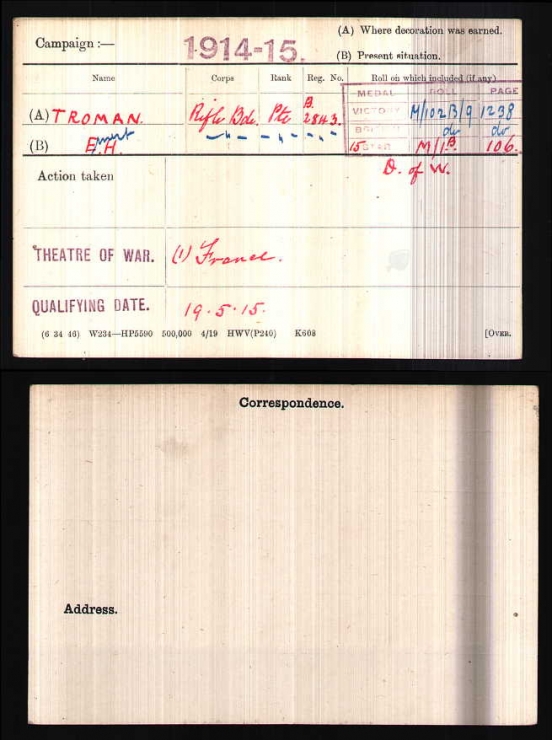 (A) Where decoration was earned.
Campaign :— 1914-15.
(B) Present situation.
Name Corps Rank Reg. No. Roll on which included (if any)
MEDAL ROLL PAGE
(A) TROMAN. Rifle Bde. Pte B. 2843. VICTORY M/102B/9 1298
(B) E.H. Ernest BRITISH do do
15 STAR M/1B. 106.
Action taken D. of W.
THEATRE OF WAR. (1) France.
QUALIFYING DATE. 19.5.15.
(6 34 46) W234—HP5590 500,000 4/19 HWV(P240) K608 [OVER.
Correspondence.
Address.